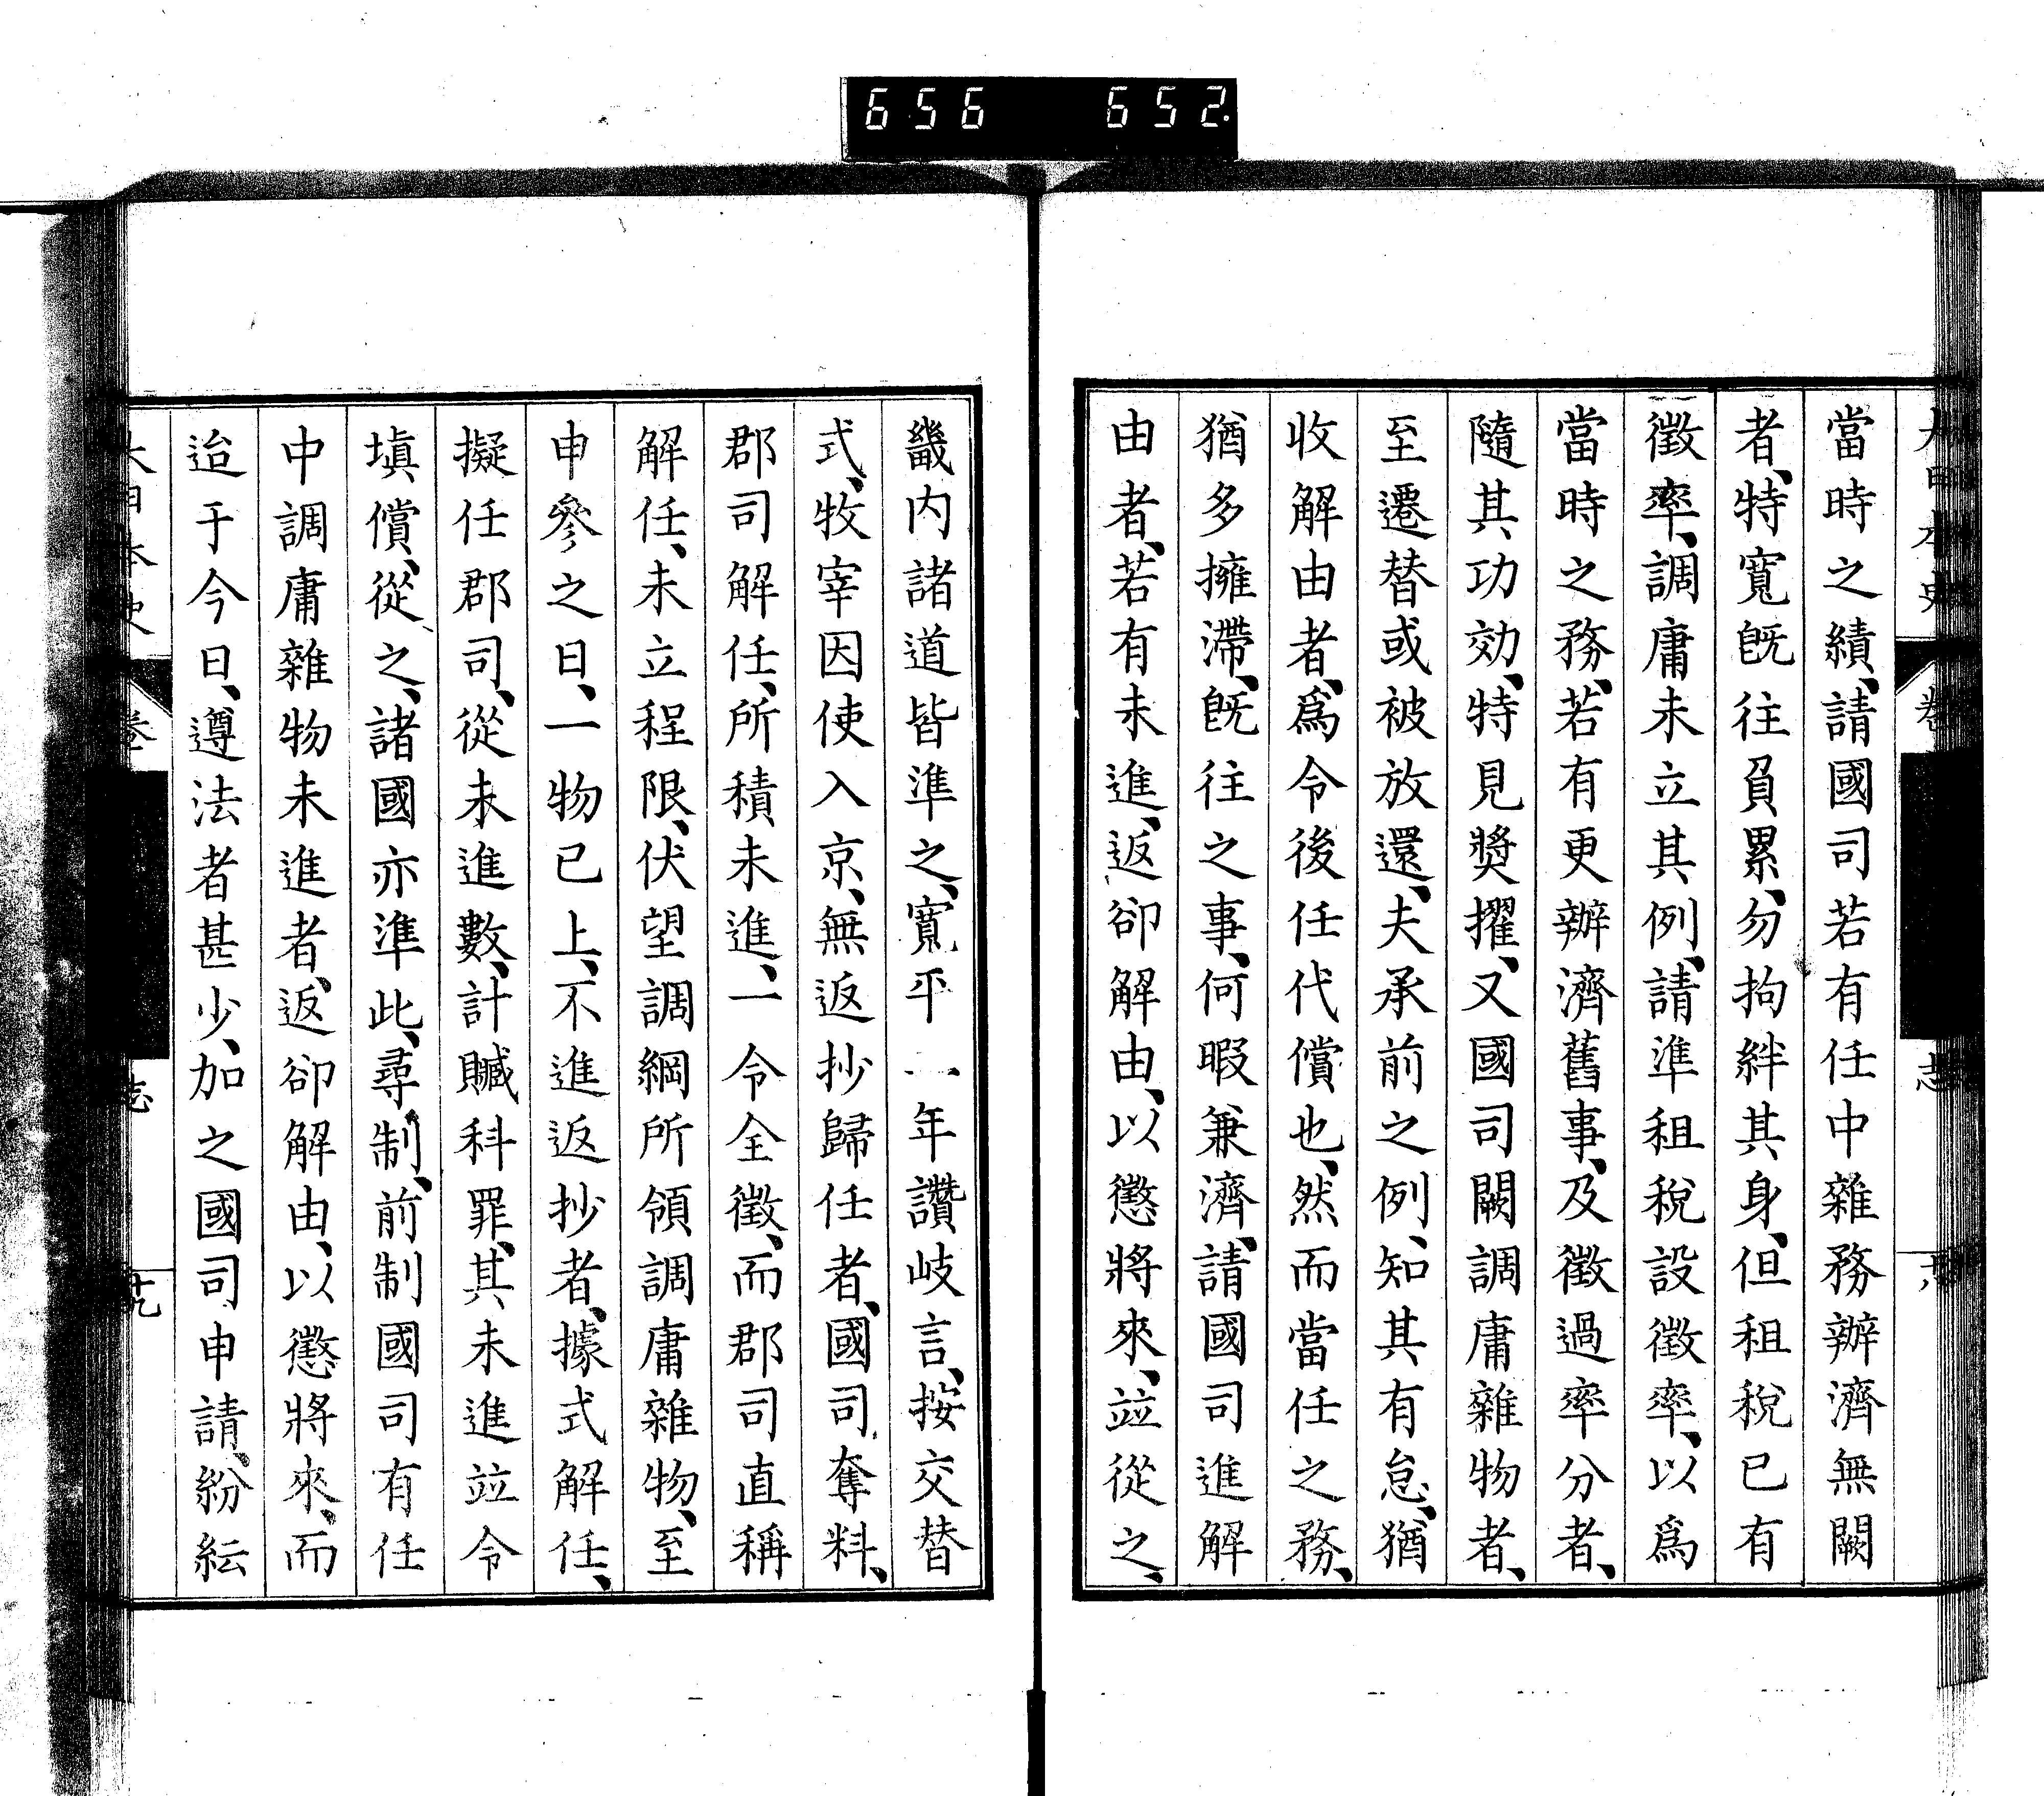 656 652
當時之績、請國司若有任中雜務辦濟無闕
者、特寬旣往負累、勿拘絆其身、但租稅已有
徵率、調庸未立其例、請準租稅設徵率、以爲
當時之務、若有更辦濟舊事、及徵過率分者、
隨其功効、特見奬擢、又國司闕調庸雜物者、
至遷替或被放還、夫承前之例、知其有怠、猶
收解由者、爲令後任代償也、然而當任之務、
猶多擁滯、旣往之事、何暇兼濟、請國司進解
由者、若有未進、返卻解由、以懲將來、竝從之、
畿内諸道皆準之、寬平一年讚岐言、按交替
式、牧宰因使入京、無返抄歸任者、國司奪料、
郡司解任、所積未進、一令全徵、而郡司直稱
解任、未立程限、伏望調綱所領調庸雜物、至
申參之日、一物已上、不進返抄者、據式解任、
擬任郡司、從未進數、計贓科罪、其未進竝令
塡償、從之、諸國亦準此、尋制、前制國司有任
中調庸雜物未進者、返卻解由、以懲將來、而
迨于今日、遵法者甚少、加之國司申請、紛紜
大日本史 卷 志 十九